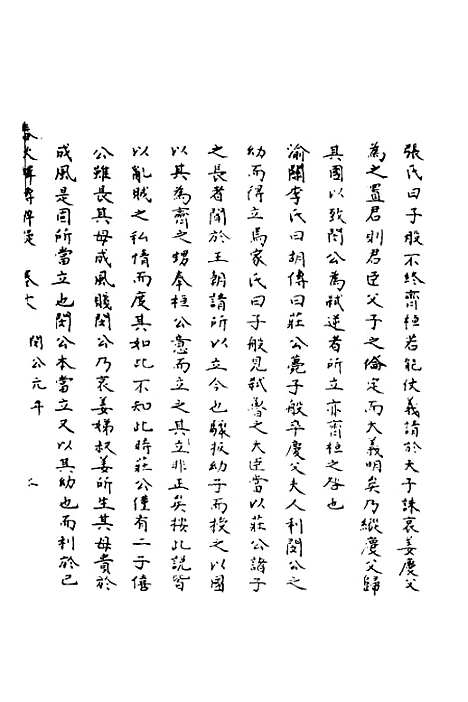 張氏曰子般不終齊桓若能仗義請於天子誅哀姜慶父
為之置君則君臣父子之倫定而大義明矣乃縱慶父歸
其國以致閔公為弒逆者所立亦齊桓之咎也
渝關李氏曰胡傳曰莊公薨子般卒慶父夫人利閔公之
幼而得立焉家氏曰子般見弒魯之大臣當以莊公諸子
之長者聞於王朝請所以立今也驟扳幼子而授之以國
以其為齊之甥奉桓公意而立之其立非正矣按此說皆
以亂賊之私情而度其如此不知此時莊公僅有二子僖
公雖長其母成風賤閔公乃哀姜娣叔姜所生其母貴於
成風是固所當立也閔公本當立又以其幼也而利於己
卷七 閔公元年